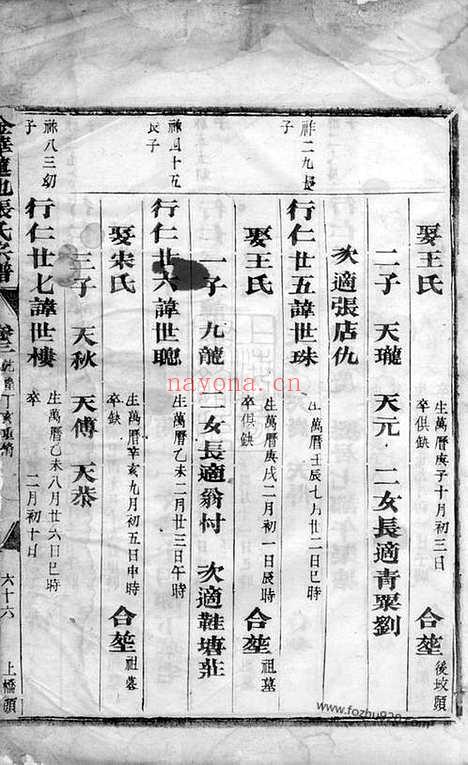 娶王氏 生萬曆庚子十月初三日 卒俱缺 合塋 後坟頭
二子 天瓏 天元 二女長適青粟劉
次適張店仇
祚二九長子 行仁廿五諱世珠 生萬曆壬辰七月廿二日巳時
娶王氏 生萬曆庚戌二月初一日辰時 卒俱缺 合塋 祖墓
一子 九龍 二女長適翁村 次適鞋塘莊
祚四十五長子 行仁廿六諱世聰 生萬曆乙未二月廿三日午時
娶宋氏 生萬曆辛亥九月初五日申時 卒缺 合塋 祖墓
三子 天秋 天傅 天恭
祚八三幼子 行仁廿七諱世樓 生萬曆乙未八月廿六日巳時 卒 二月初十日
張氏宗譜 卷三 乾隆丁亥重脩 六十六 上橋頭
nayona.cn
www.fozhu920.com